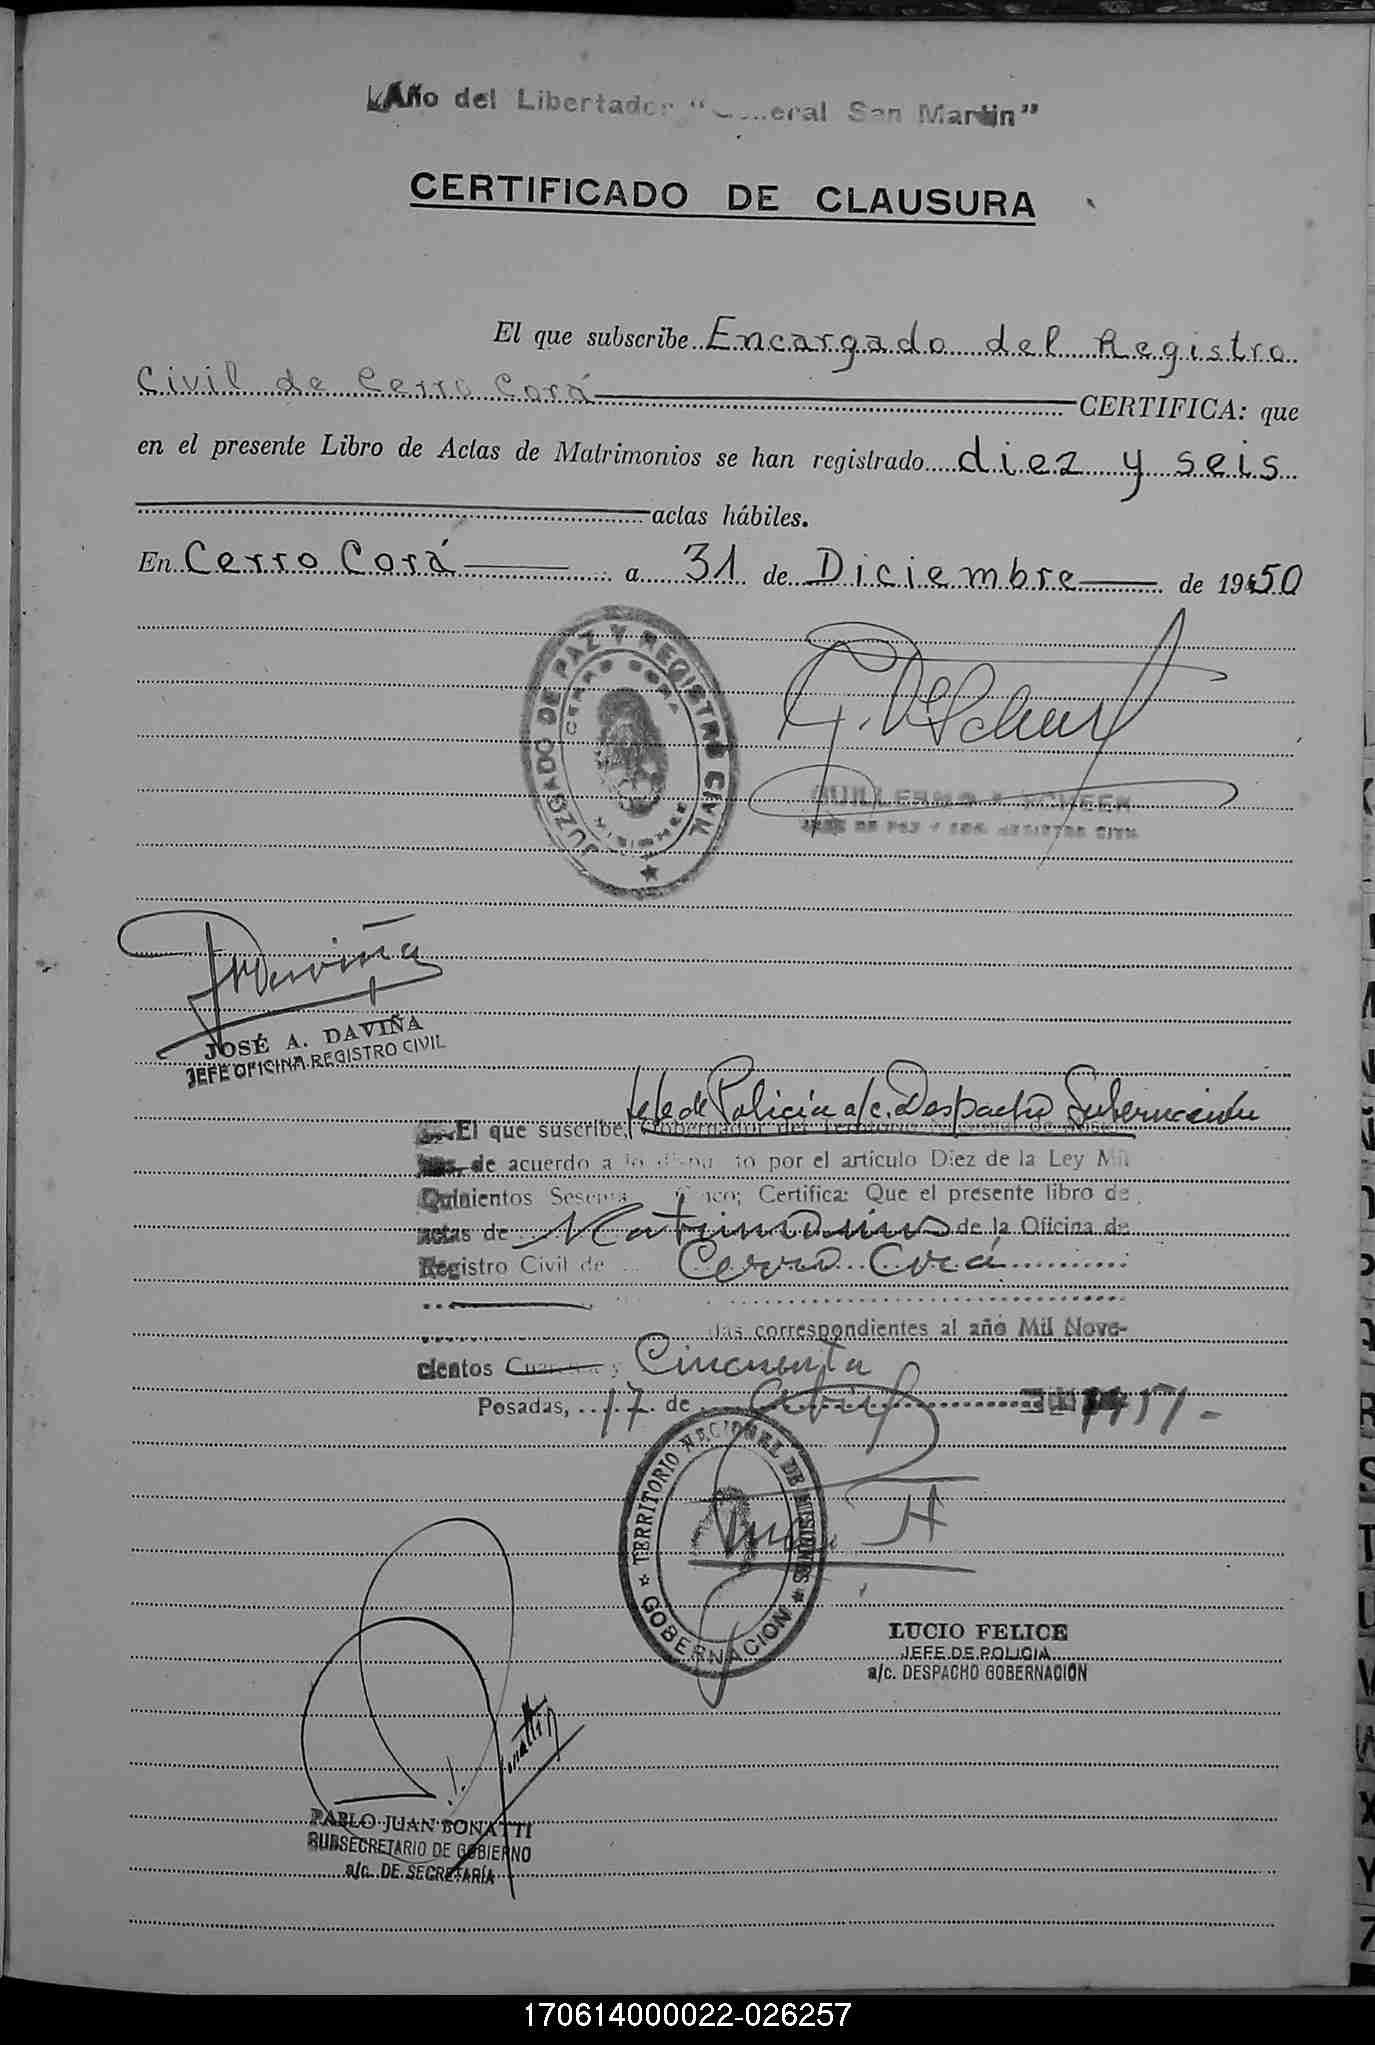 Año del Libertador "General San Martin"
CERTIFICADO DE CLAUSURA
El que subscribe Encargado del Registro
Civil de Cerro Corá CERTIFICA: que
en el presente Libro de Actas de Matrimonios se han registrado diez y seis
actas hábiles.
En Cerro Corá a 31 de Diciembre de 1950
JUZGADO DE PAZ Y REGISTRO CIVIL
CERRO CORA
MISIONES
GUILLERMO
JUEZ DE PAZ Y ENC. REGISTRO CIVIL
JOSÉ A. DAVIÑA
JEFE OFICINA REGISTRO CIVIL
Jefe de Policía a/c. Despacho Gobernación
El que suscribe, Gobernador del Territorio Nacional de Misio-
nes, de acuerdo a lo dispuesto por el artículo Diez de la Ley Mil
Quinientos Sesenta y Cinco; Certifica: Que el presente libro de
actas de Matrimonios de la Oficina de
Registro Civil de Cerro Corá
das correspondientes al año Mil Nove-
cientos Cuarenta y Cincuenta
Posadas, 17 de Abril 1951.-
TERRITORIO NACIONAL DE MISIONES
GOBERNACION
LUCIO FELICE
JEFE DE POLICIA
a/c. DESPACHO GOBERNACIÓN
PABLO JUAN BONATTI
SUBSECRETARIO DE GOBIERNO
a/c. DE SECRETARÍA
170614000022-026257